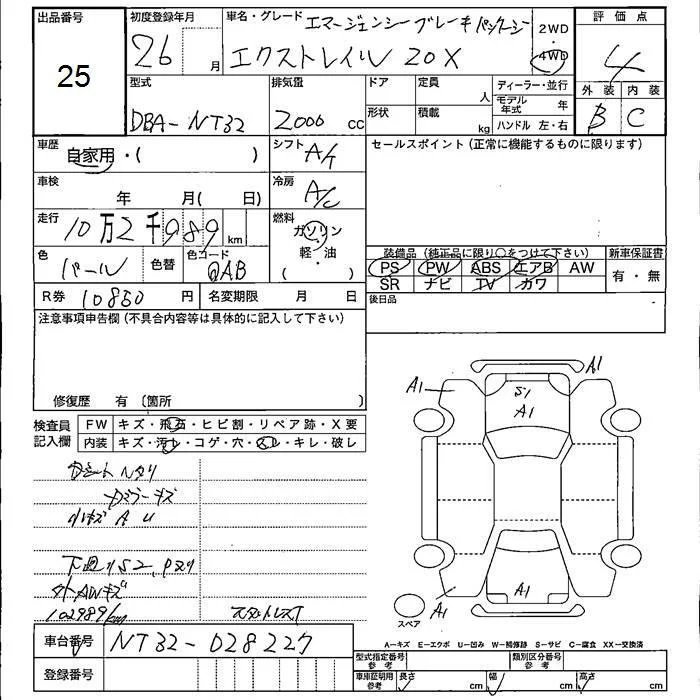 出品番号
25
初度登録年月
26 月
車名・グレード エマージェンシーブレーキパッケージ
エクストレイル 20X
2WD
・
4WD
評価点
4
外装 内装
B C
型式
DBA-NT32
排気量
2000 cc
ドア
定員 人
形状
積載 kg
ディーラー・並行
モデル年式 年
ハンドル 左・右
車歴
自家用・( )
シフト
A/T
セールスポイント(正常に機能するものに限ります)
車検
年 月( 日)
冷房
A/C
走行
10万2千989 km
燃料
ガソリン
・
軽・油
( )
色
パール
色替
色コード
QAB
装備品(純正品に限り○をつけて下さい)
PS PW ABS エアB AW
SR ナビ TV カワ
新車保証書
有・無
R券 10850 円
名変期限 月 日
後日品
注意事項申告欄(不具合内容等は具体的に記入して下さい)
修復歴 有(箇所 )
検査員
記入欄
FW キズ・飛石・ヒビ割・リペア跡・X要
内装 キズ・汚レ・コゲ・穴・スレ・キレ・破レ
小キズ A U
外AWキズ
102989km
スタットレスT
A1
A1
S1
A1
A1
A1
スペア
A=キズ E=エクボ U=凹み W=補修跡 S=サビ C=腐食 XX=交換済
車台番号 NT32-028227
登録番号
型式指定番号
参考
類別区分番号
参考
車庫証明用
参考
長さ cm
幅 cm
高さ cm